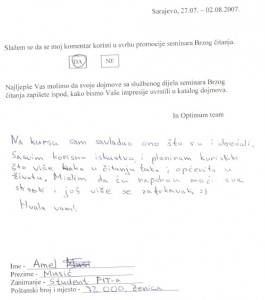 Sarajevo, 27.07. – 02.08.2007.
Slažem se da se moj komentar koristi u svrhu promocije seminara Brzog čitanja.
DA NE
Najljepše Vas molimo da svoje dojmove sa službenog dijela seminara Brzog
čitanja zapišete ispod, kako bismo Vaše impresije uvrstili u katalog dojmova.
In Optimum team
Na kursu sam savladao ono što su i obećali.
Sasvim korisno iskustvo, i planiram koristiti
što više kako u čitanju tako i općenito u
životu. Mislim da ću napokon moći sve
stići i još više se zafrkavati :)
Hvala vam!
Ime - Amel
Prezime - Musić
Zanimanje - Student FIT-a
Poštanski broj i mjesto - 72 000, Zenica